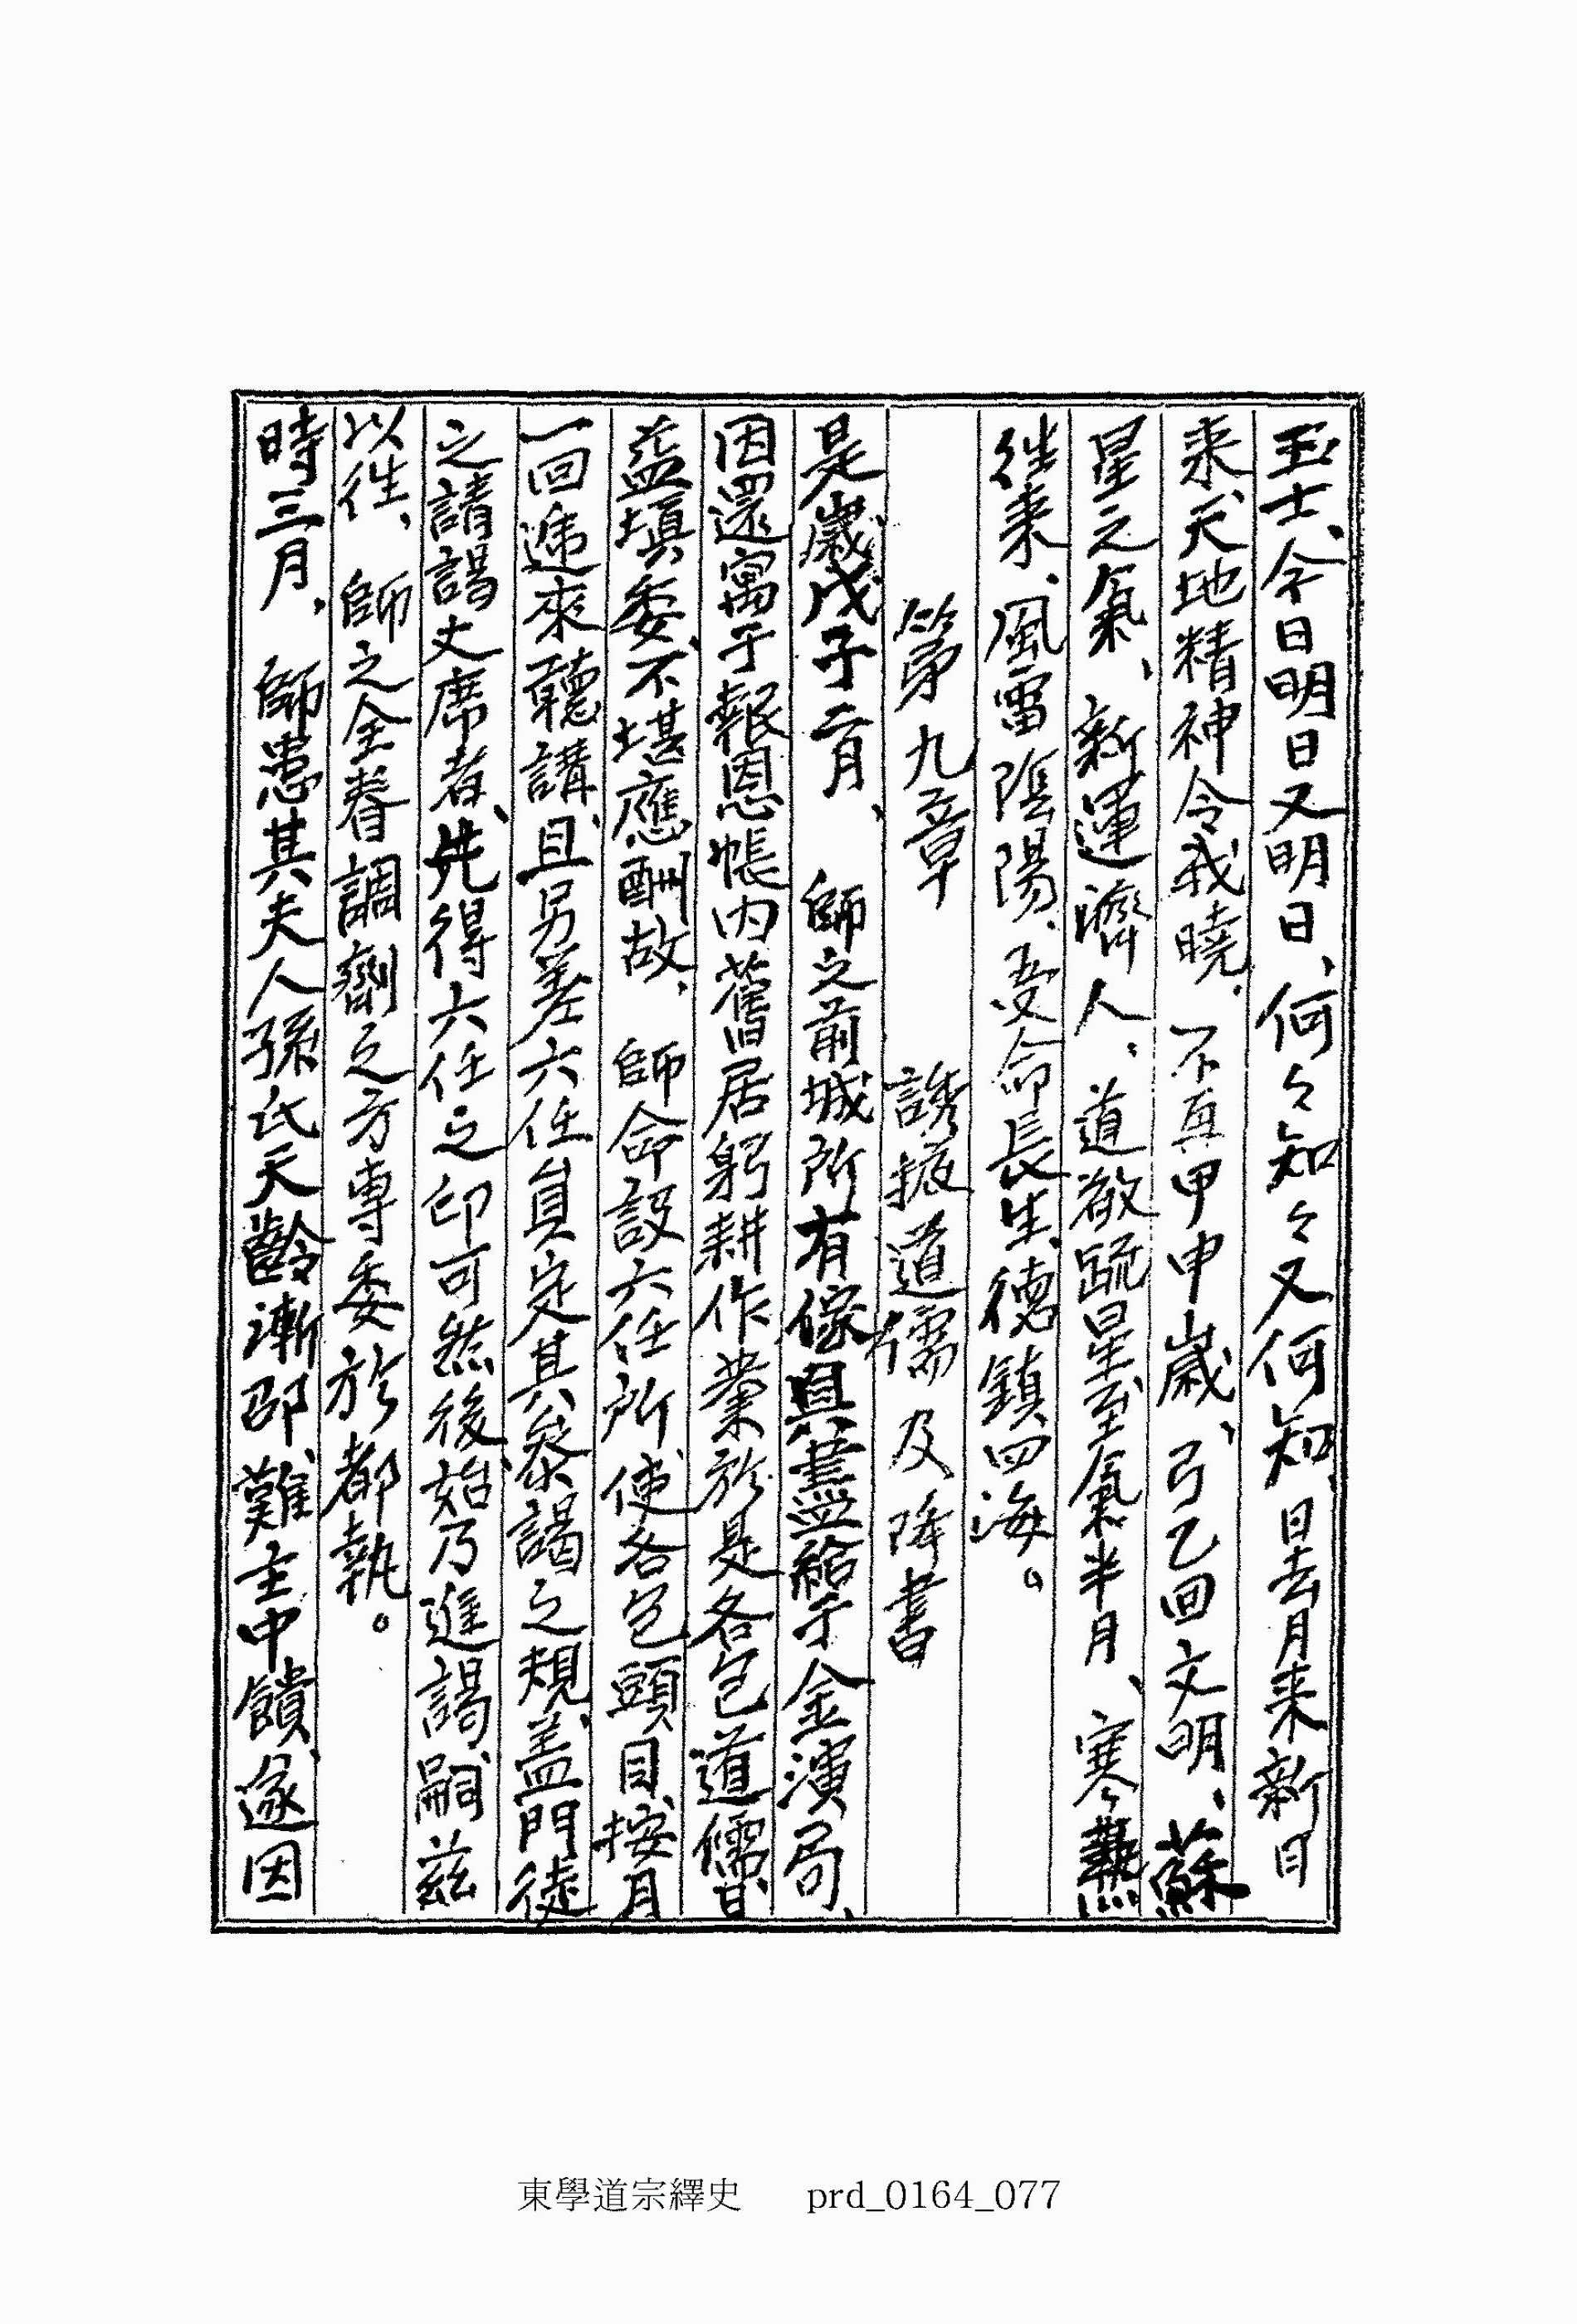 玉士、今日明日又明日、何々知々又何知、日去月来新日
来、天地精神令我曉、不再甲申歲、弓乙回文明、蘇
星之氣、新運濟人、道啟䟽星至氣半月、寒熱
徃来、風雷陰陽、受命長生、德鎮四海。
第九章 誘掖道儒及降書
是歲戊子二月、師之前城所有傢具盡給于金演局、
因還寓于報恩帳內舊居躬耕作業於是各包道儒日
益塡委、不堪應酬故、師命設六任所、使各包頭目、按月
一回遞來聽講、且另差六任員定其叅謁之規、盖門徒
之請謁丈席者、先得六任之印可然後、始乃進謁、嗣茲
以徃、師之全眷調劑之方專委於都執。
時三月、師患其夫人孫氏天齡漸邵、難主中饋、遂因
東學道宗繹史 prd_0164_077